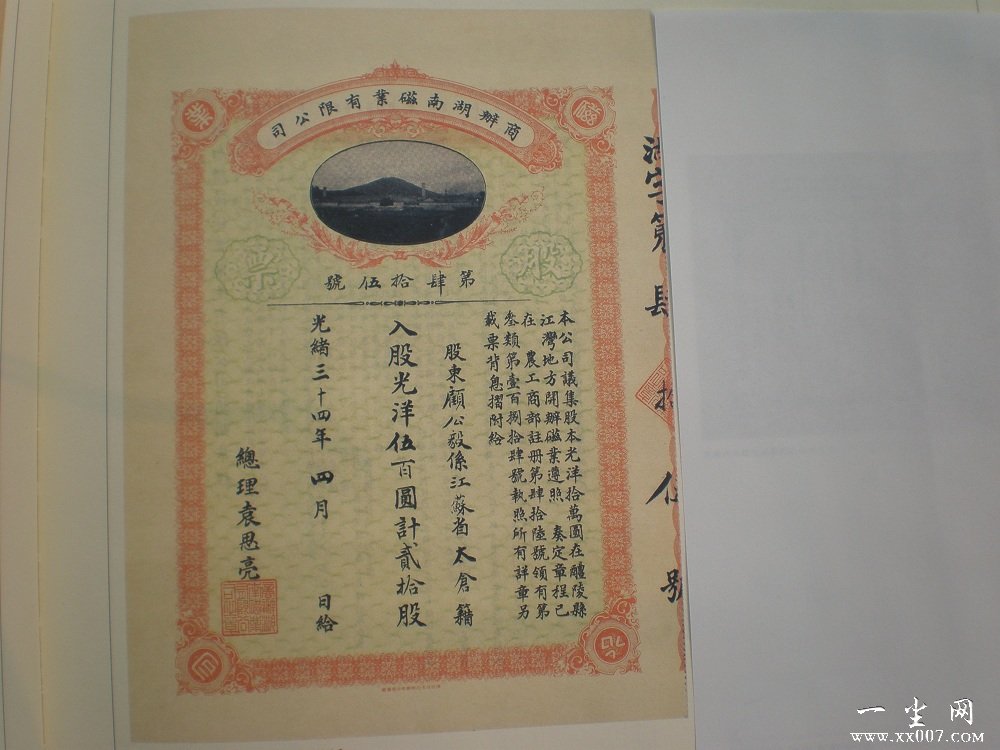 商辦湖南磁業有限公司
業
公
司
股
票
第肆拾伍號
本公司議集股本光洋拾萬圓在醴陵縣
江灣地方開辦磁業遵照 奏定章程已
在 農工商部註册第肆拾陸號領有第
叁類第壹百捌拾肆號執照所有詳章另
載票背息摺附給
股東顧公毅係江蘇省太倉籍
入股光洋伍百圓計貳拾股
光緒三十四年四月 日給
總理袁思亮
第肆拾伍號
一尘网
www.xx007.com